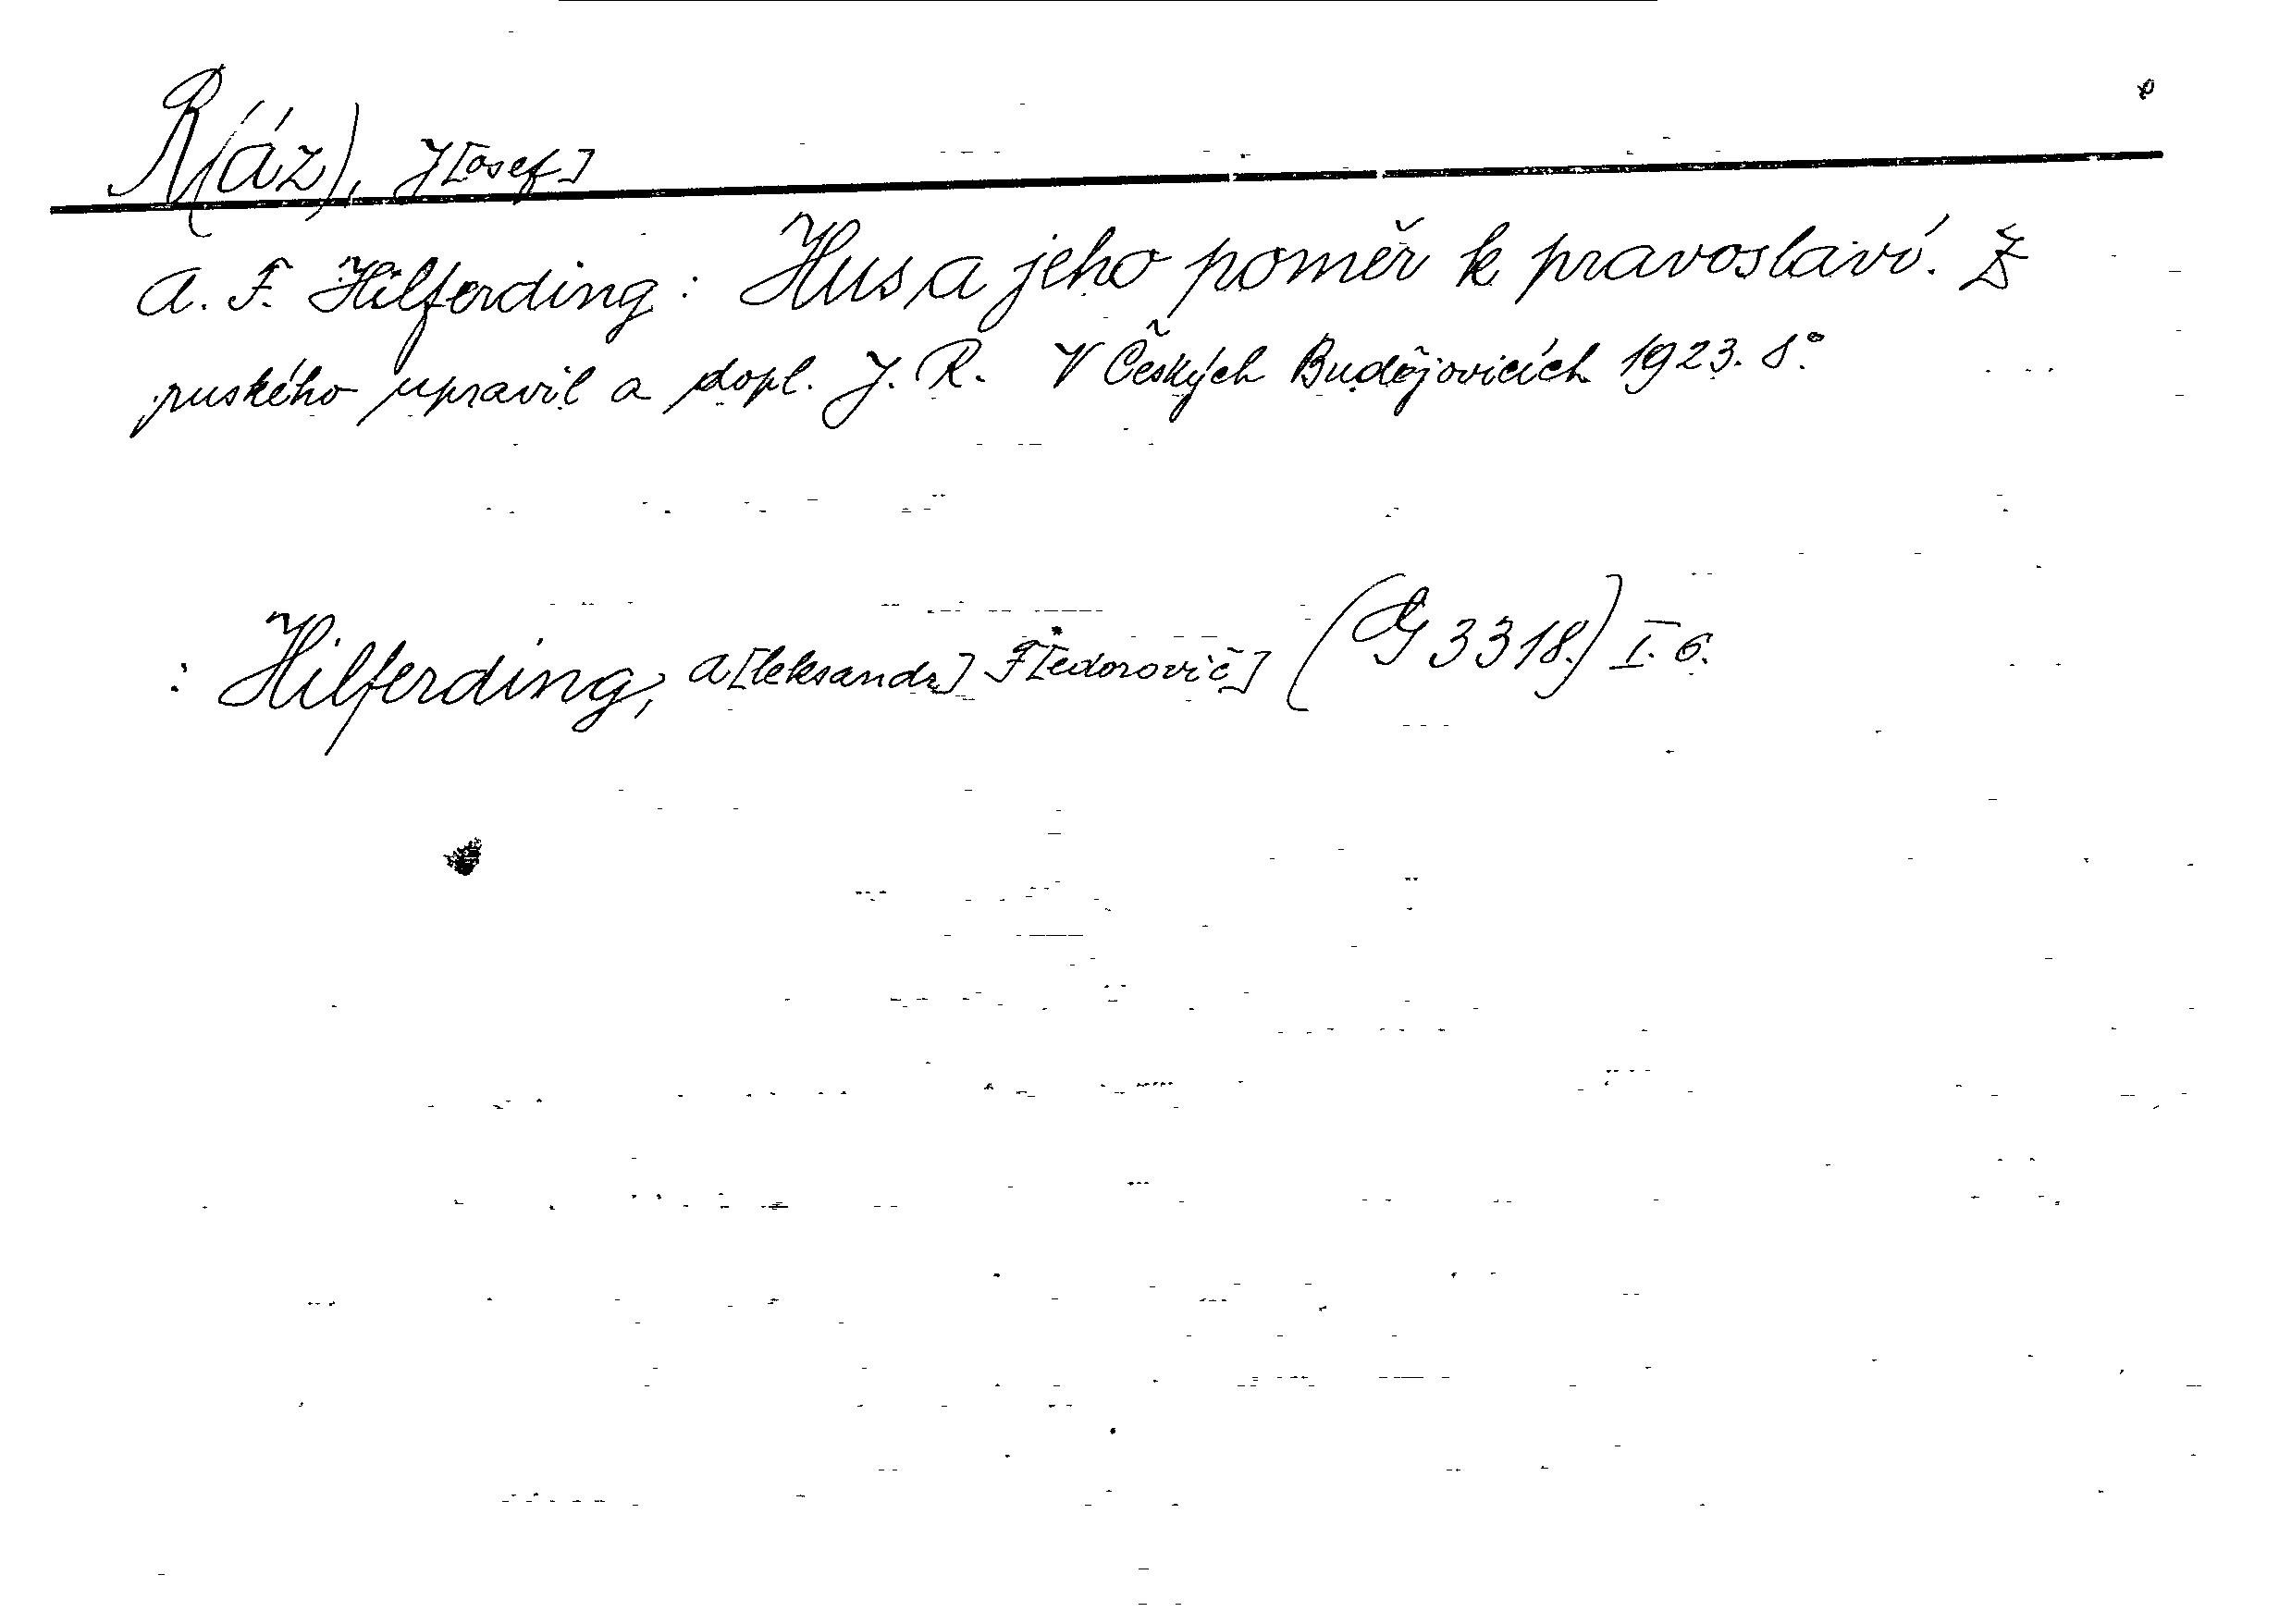 R(áz), J[osef]
A. F. Hilferding: Hus a jeho poměr k pravoslaví. Z
ruského upravil a dopl. J. R. V Českých Budějovicích 1923. 8°
: Hilferding, A[leksandr] F[edorovič] (G 3318.) I. 6.